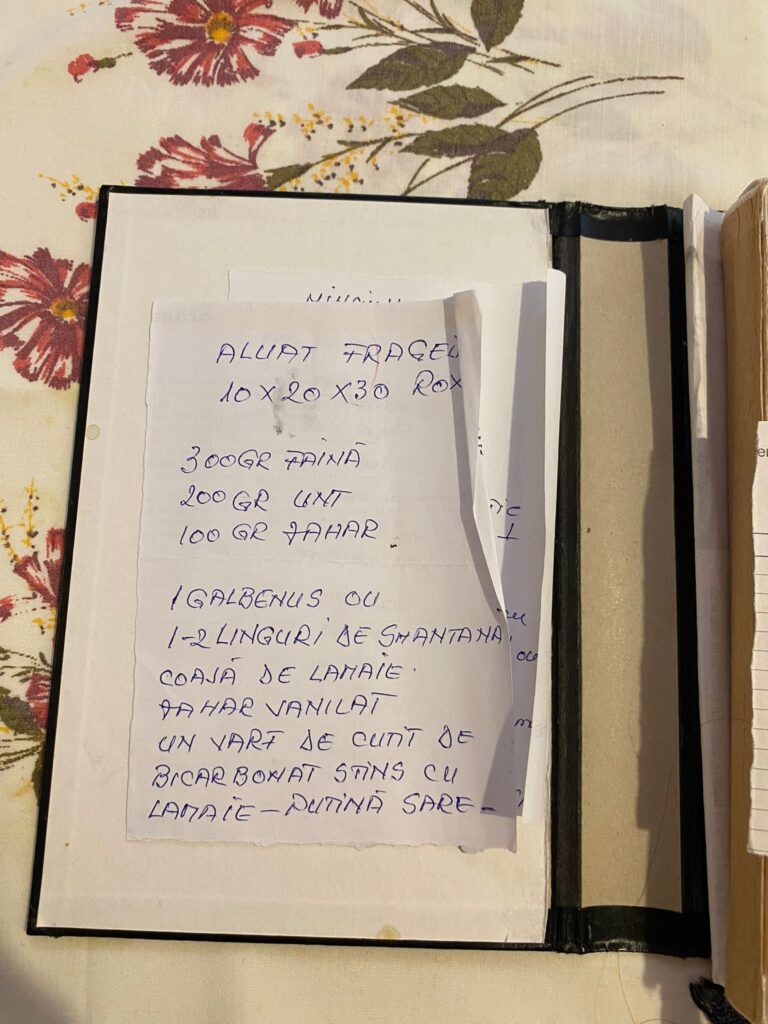 ALUAT FRAGED
10 X 20 X 30 ROX
300GR FAINĂ
200GR UNT
100 GR ZAHAR
1 GALBENUS OU
1-2 LINGURI DE SMANTANA.
COAJĂ DE LAMAIE.
ZAHAR VANILAT
UN VARF DE CUTIT DE
BICARBONAT STINS CU
LAMAIE – PUTINĂ SARE –